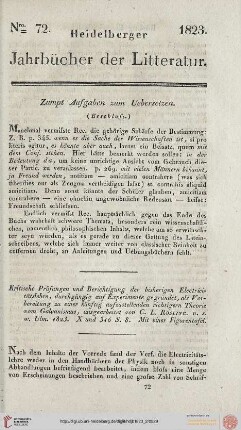 Nro. 72. Heidelberger 1823.
Jahrbücher der Litteratur.
Zumpt Aufgaben zum Uebersetzen.
(Beschluss.)
Manchmal vermisste Rec. die gehörige Schärfe der Bestimmung:
Z. B. p. 345. wenn es die Sache der Wissenschaften ist, si pro
literis agitur, es könnte aber auch, kraun ein Beisatz, quum mit
dem Conj. stehen. Hier hätte bemerkt werden sollen: in der
Bedeutung da, um keine unrichtige Ansicht vom Gebrauch dieser
Partic. zu veranlassen. p. 269. mit vielen Männern bekannt,
ja Freund werden, notitiam — amicitiam
überführt nur als Zeugen vertheidigen lasse; at contrahere aliquid
amicitias. Denn sonst könnte der Schüler glauben, notitiam —
amicitiam — eine ohnehin ungewöhnliche Redensart — heisse:
Freundschaft schliessen.
Endlich vermisst Rec. hauptsächlich gegen das Ende des
Buchs wahrhaft schwere Themata, besonders rein wissenschaftlichen,
abstract philosophischen
Es würde gerade an dieser Gattung des Lateinschreibens,
welche sich immer weiter von classischer Seinheit zu
entfernen drohet, an Anleitungen und Uebungsbüchern fehlt.
Kritische Prüfungen und Berichtigung der bisherigen Electricitätslehre,
durchgängig auf Experimente gegründet, als Vorbereitung
zu einer künftig aufzustellenden richtigern Theorie
vom Galvanismus, ausgearbeitet von C. L.
Ulm. 1823. X und 346 S. 8. Mit einer Figurentafel.
Nach dem Inhalte der Vorrede fand der Verf. die Electricitätslehre
weder in den Handbüchern der Physik noch in sonstigen
Abhandlungen befriedigend bearbeitet, indem bloss eine Menge
von Erscheinungen beschrieben, und eine grosse Zahl von Schrif-
72